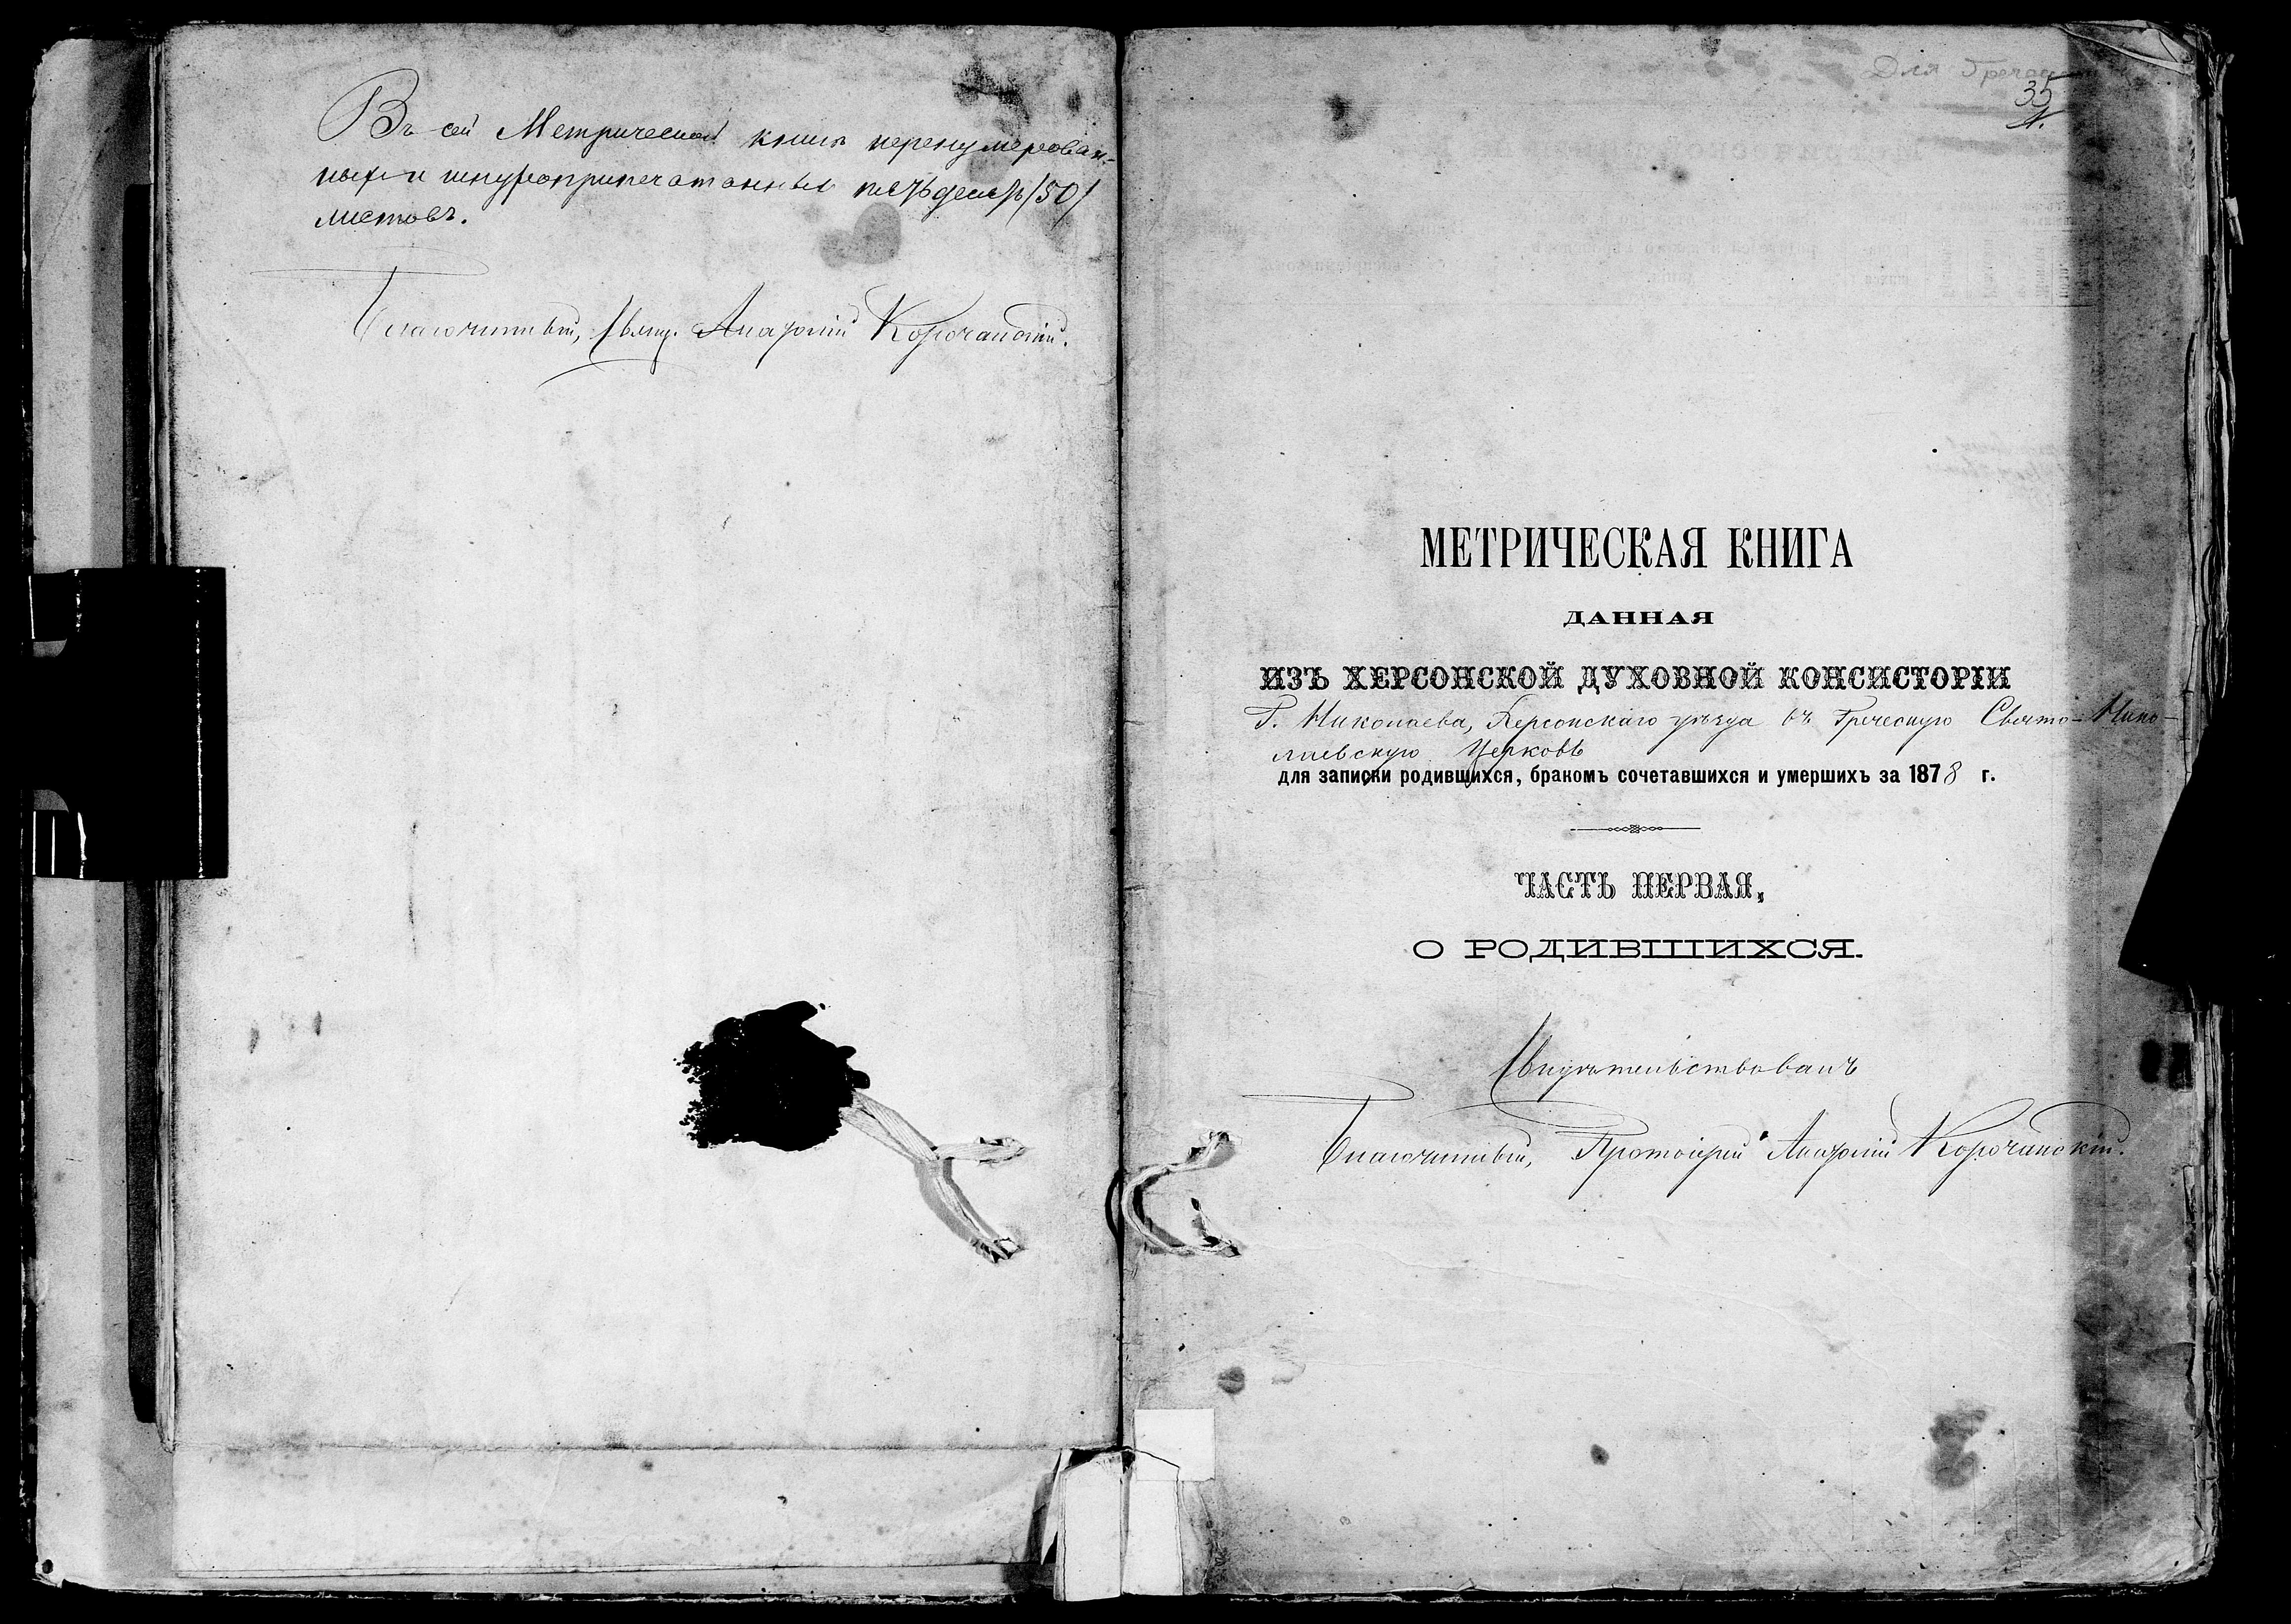 Въ сей Метрической книгѣ перенумерован-
ныхъ и шнуроприпечатанныхъ пятьдесятъ /50/
листовъ.
Благочинный, Свящ. Анатолій Корочанскій.
Для Гречес
35
1.
МЕТРИЧЕСКАЯ КНИГА
ДАННАЯ
ИЗЪ ХЕРСОНСКОЙ ДУХОВНОЙ КОНСИСТОРІИ
Г. Николаева, Херсонскаго уѣзда въ Греческую Свято-Нико-
лаевскую Церковь
для записки родившихся, бракомъ сочетавшихся и умершихъ за 1878 г.
ЧАСТЬ ПЕРВАЯ,
О РОДИВШИХСЯ.
Свидѣтельствовалъ
Благочинный, Протоіерей Анатолій Корочанскій.